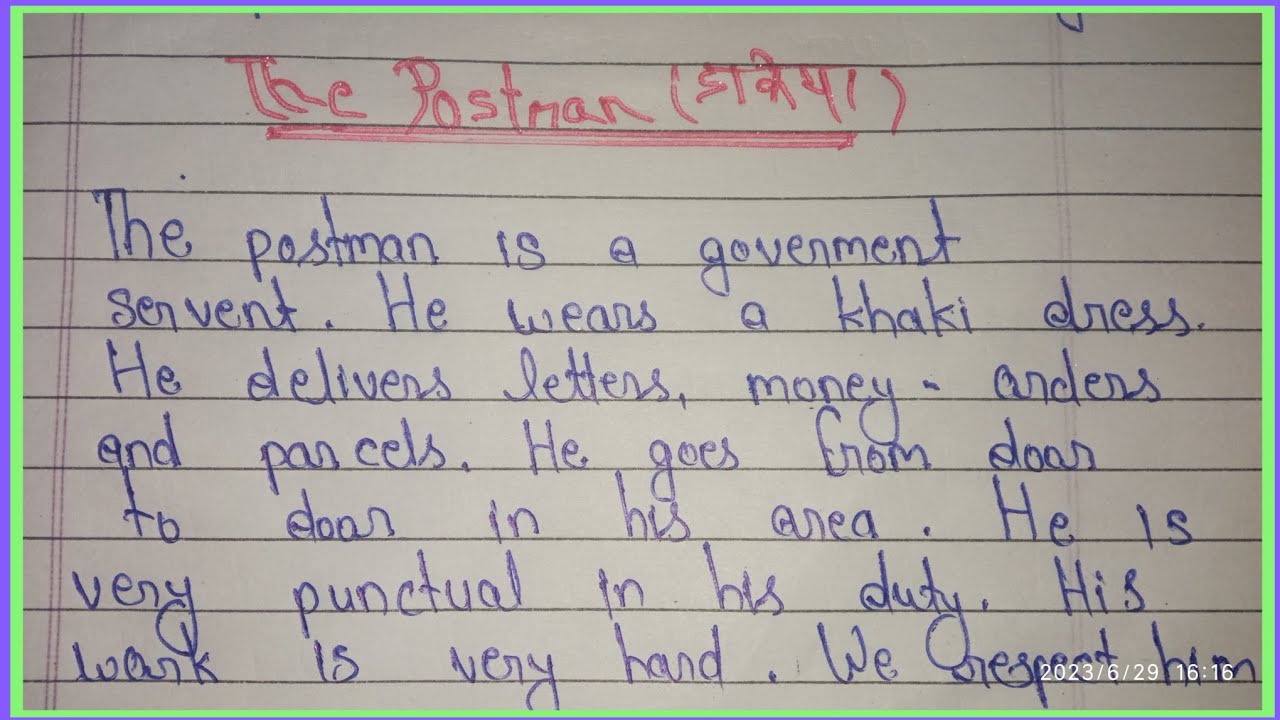 The Postman (डाकिया)
The postman is a goverment
servent. He wears a khaki dress.
He delivers letters, money - orders
and parcels. He goes from door
to door in his area. He is
very punctual in his duty. His
work is very hard. We respect him
2023/6/29 16:16